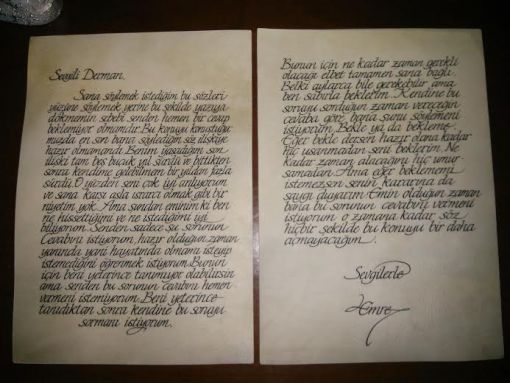 Sevgili Derman.
Sana söylemek istediğim bu sözleri
yüzüne söylemek yerine bu şekilde yazıya
dökmemin sebebi senden hemen bir cevap
beklemiyor olmamdır. Bu konuyu konuştuğu
muzda en son bana söylediğin siz ilişkiye
hazır olmamandı. Benim yaşadığım son
ilişki tam beş buçuk yıl sürdü ve bittikten
sonra kendime gelebilmem bir yıldan fazla
sürdü. O yüzden seni çok iyi anlıyorum
ve sana karşı asla ısrarcı olmak gibi bir
niyetim yok. Ama şundan eminim ki ben
ne hissettiğimi ve ne istediğimi iyi
biliyorum. Senden sadece şu sorunun
cevabını istiyorum, hazır olduğun zaman
yanında yani hayatında olmamı isteyip
istemediğini öğrenmek istiyorum. Bunun
için beni yeterince tanımıyor olabilirsin
ama senden bu sorunun cevabını hemen
vermeni istemiyorum. Beni yeterince
tanıdıktan sonra kendine bu soruyu
sormanı istiyorum.
Bunun için ne kadar zaman gerekli
olacağı elbet tamamen sana bağlı.
Belki aylarca bile gerekebilir ama
ben sabırla beklerim. Kendine bu
soruyu sorduğun zaman vereceğin
cevaba göre bana şunu söylemeni
istiyorum, Bekle ya da bekleme.
Eğer bekle dersen hazır olana kadar
hiç usanmadan seni beklerim. Ne
kadar zaman alacağını hiç umur
samadan. Ama eğer beklememi
istemezsen senin kararına da
saygı duyarım. Emin olduğun zaman
bana bu sorunun cevabını vermeni
istiyorum. o zamana kadar söz
hiçbir şekilde bu konuyu bir daha
açmayacağım.
Sevgilerle
Emre